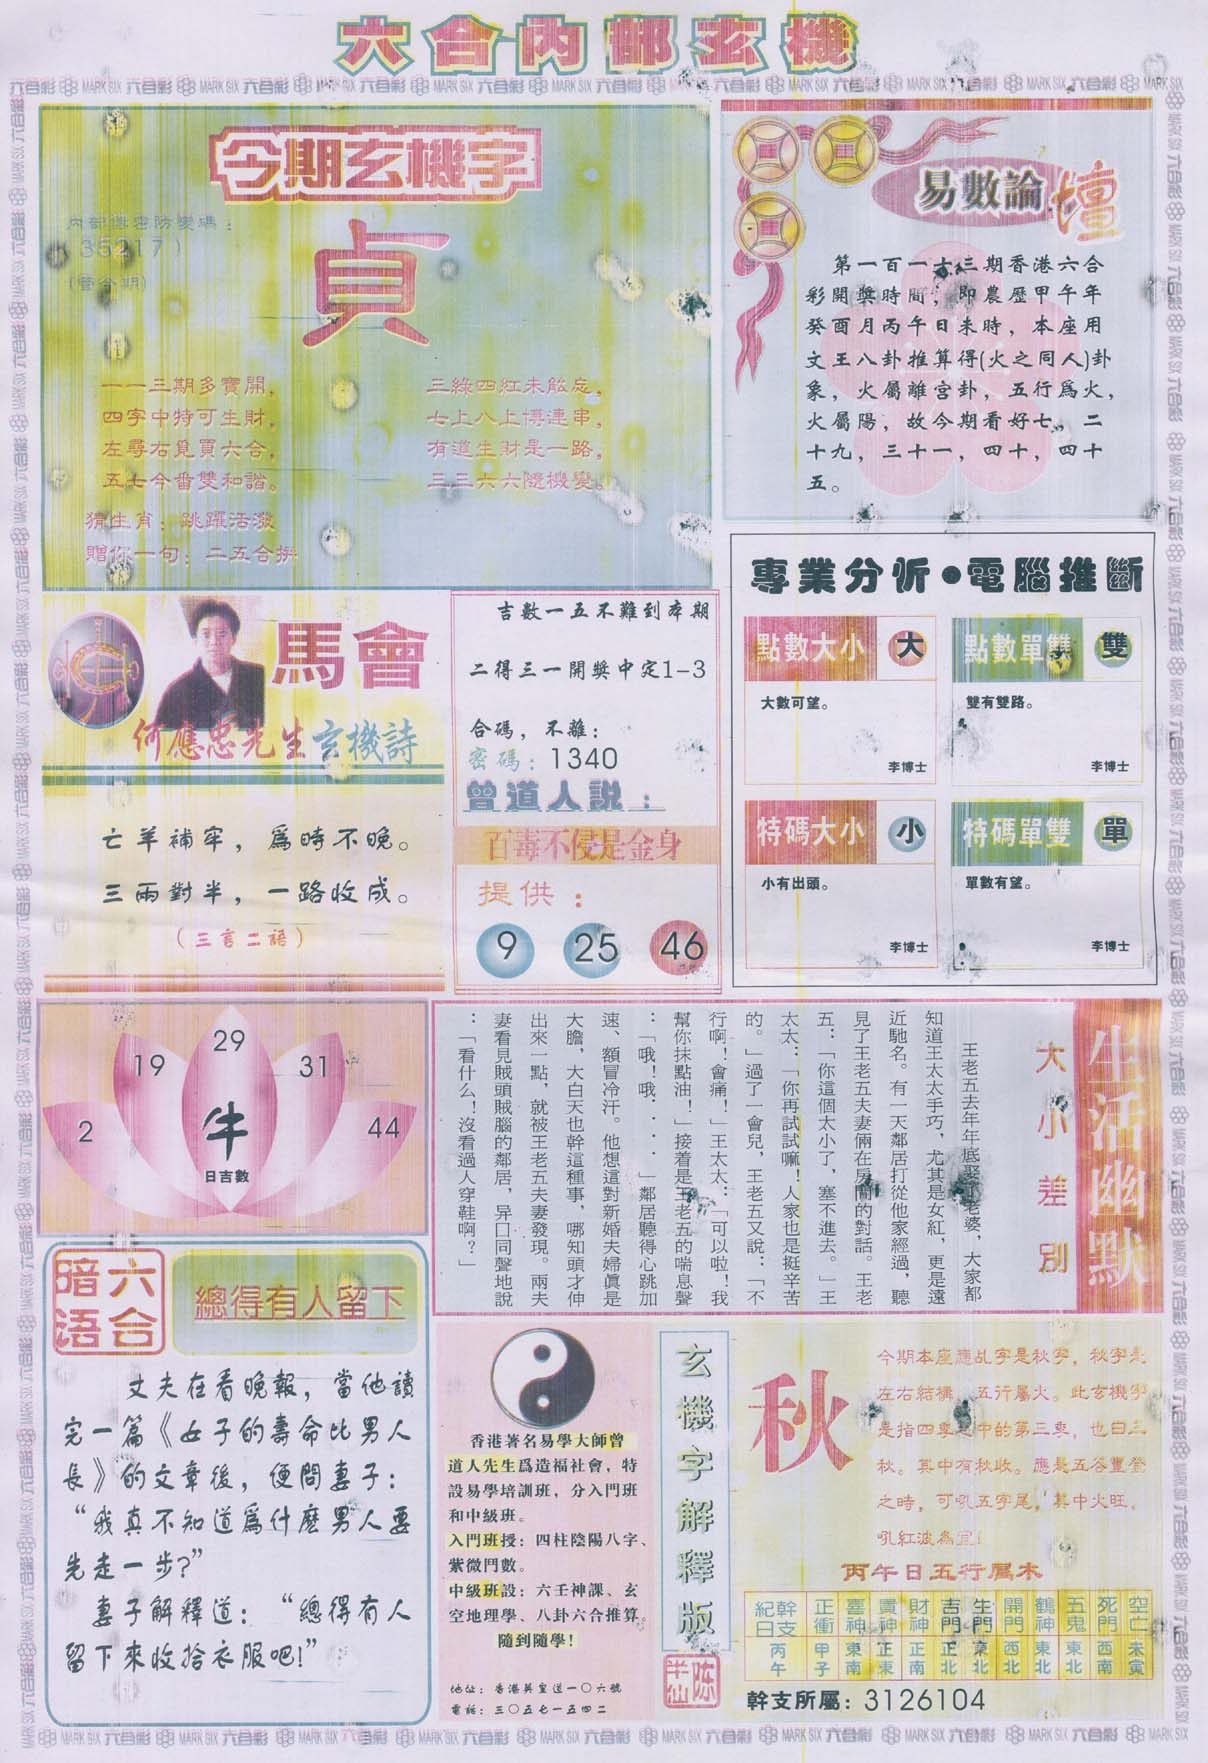 六合內部玄機
今期玄機字
內部傳密防變碼：
35217）
貞
一一三期多寶開，
四字中特可生財，
左尋右覓買六合，
五七今番雙和諧。
三綠四紅未敢忘，
七上八上博連串，
有道生財是一路，
三三六六隨機變。
猜生肖：跳躍活潑
贈你一句：二五合拚
易數論壇
第一百一十三期香港六合
彩開獎時間，即農歷甲午年
癸酉月丙午日未時，本座用
文王八卦推算得(火之同人)卦
象，火屬離宮卦，五行爲火，
火屬陽，故今期看好七，二
十九，三十一，四十，四十
五。
馬會
何應忠先生玄機詩
亡羊補牢，爲時不晚。
三兩對半，一路收成。
（三言二語）
吉數一五不難到本期
二得三一開獎中定1-3
合碼，不離：
密碼：1340
曾道人説：
百毒不侵是金身
提供：
9 25 46
專業分析●電腦推斷
點數大小 大
大數可望。
李博士
點數單雙 雙
雙有雙路。
李博士
特碼大小 小
小有出頭。
李博士
特碼單雙 單
單數有望。
李博士
2 19 29 31 44
牛
日吉數
生活幽默
大小差別
王老五去年年底娶了老婆，大家都
知道王太太手巧，尤其是女紅，更是遠
近馳名。有一天鄰居打從他家經過，聽
見了王老五夫妻倆在房間的對話。王老
五：「你這個太小了，塞不進去。」王
太太：「你再試試嘛！人家也是挺辛苦
的。」過了一會兒，王老五又說：「不
行啊！會痛！」王太太：「可以啦！我
幫你抹點油！」接着是王老五的喘息聲
：「哦！哦．．．」鄰居聽得心跳加
速、額冒冷汗。他想這對新婚夫婦眞是
大膽，大白天也幹這種事，哪知頭才伸
出來一點，就被王老五夫妻發現。兩夫
妻看見賊頭賊腦的鄰居，异口同聲地說
：「看什么！沒看過人穿鞋啊？」
六合暗语
總得有人留下
丈夫在看晚報，當他讀
完一篇《女子的壽命比男人
長》的文章後，便問妻子：
“我真不知道爲什麽男人要
先走一步?”
妻子解釋道：“總得有人
留下來收拾衣服吧!”
香港著名易學大師曾
道人先生爲造福社會，特
設易學培訓班，分入門班
和中級班。
入門班授：四柱陰陽八字、
紫微鬥數。
中級班設：六壬神課、玄
空地理學、八卦六合推算。
隨到隨學！
地址：香港英皇道一〇六號
電話：三〇五七一五四二
玄機字解釋版
陈半仙
秋
今期本座應乩字是秋字，秋字是
左右結構，五行屬火。此玄機字
是指四季之中的第三季，也曰三
秋。其中有秋收。應是五谷豐登
之時，可吼五字尾，其中火旺。
吼紅波為宜！
丙午日五行屬木
幹支紀日 正衝 喜神 貴神 財神 吉門 生門 開門 鶴神 五鬼 死門 空亡
丙午 甲子 東南 正東 正南 正北 東北 西北 東北 東北 西南 未寅
幹支所屬：3126104